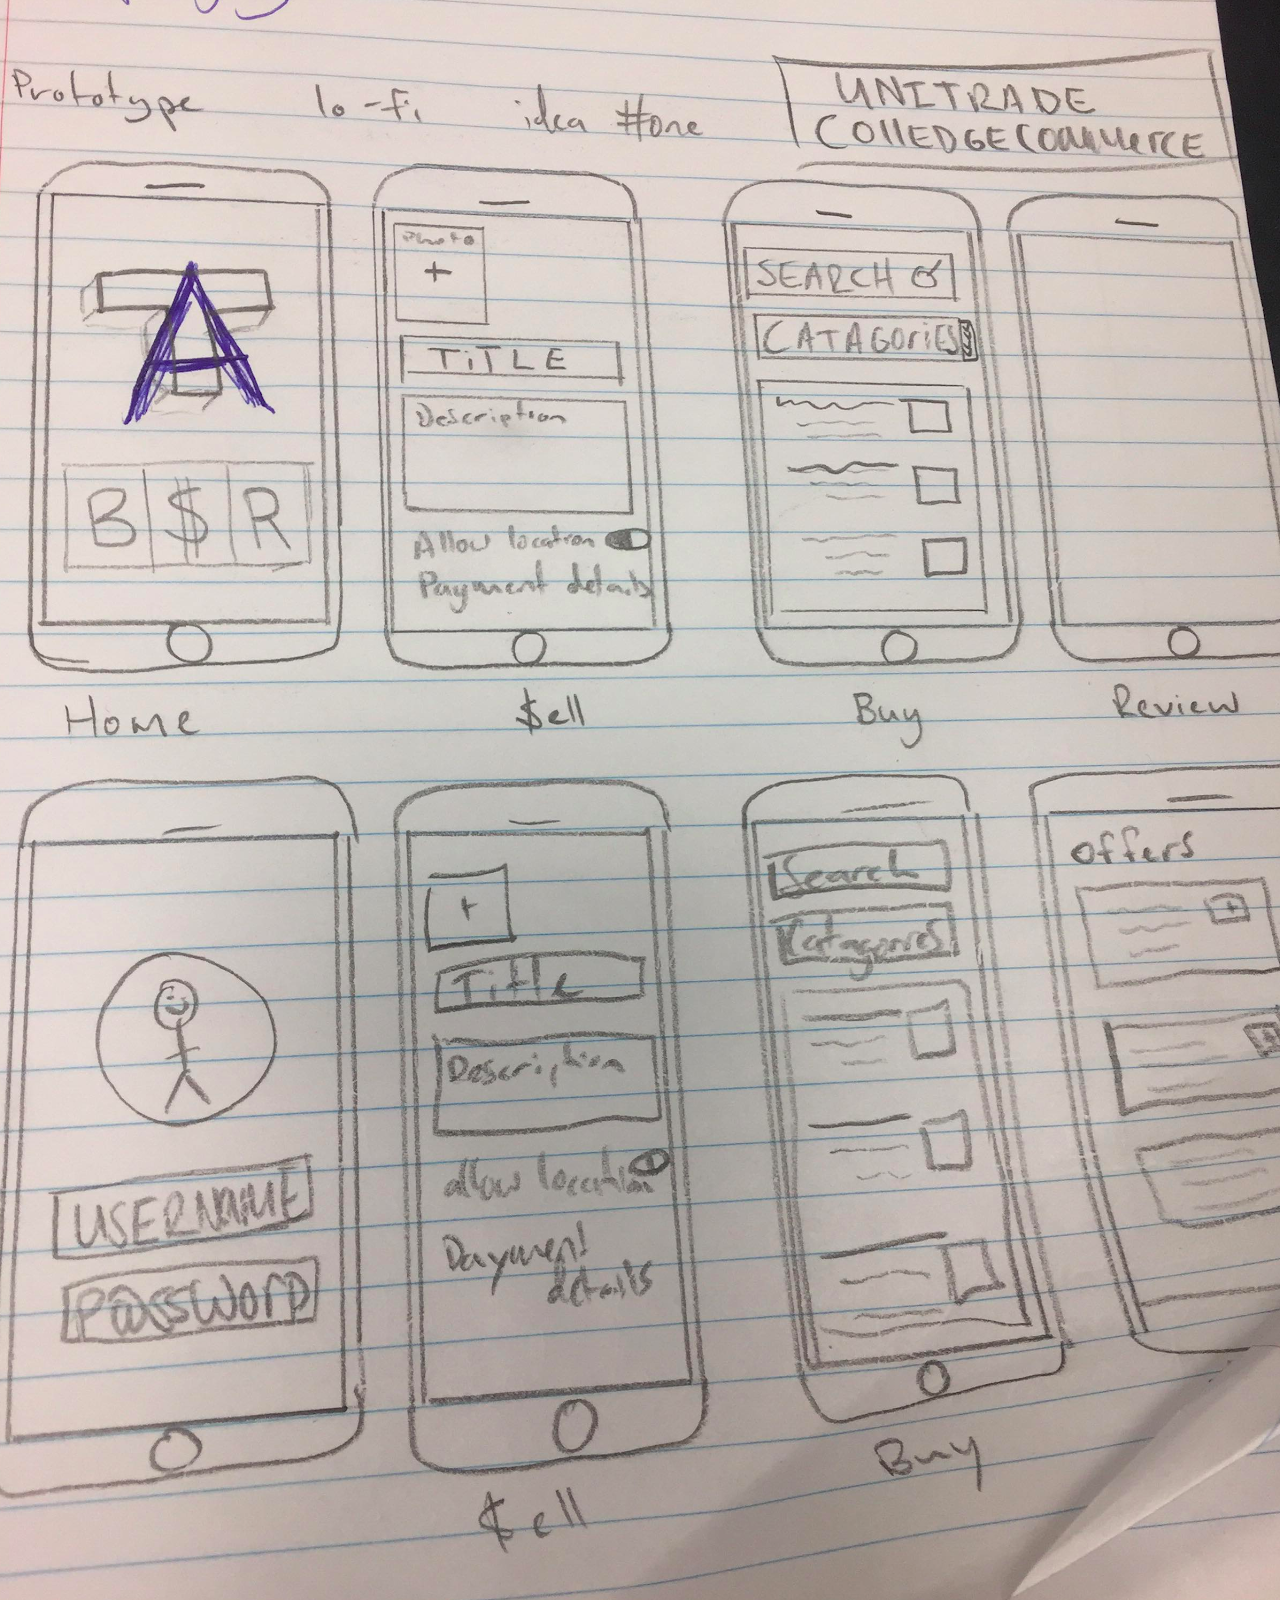 Prototype lo-fi idea #one
UNITRADE
COllEDGECOmmerCE
TA
B $ R
Home
Photo
+
TiTLE
Description
Allow location
Payment details
$ell
SEARCH
CATAGOriES
Buy
Review
USERNAME
PASSWOrD
+
Title
Description
allow location
Payment
details
$ell
Search
Catagories
Buy
Offers
+